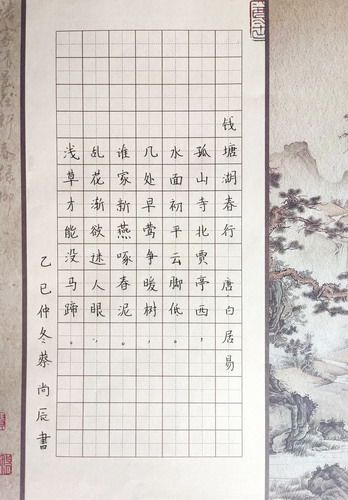 钱塘湖春行 唐·白居易
孤山寺北贾亭西，
水面初平云脚低。
几处早莺争暖树，
谁家新燕啄春泥。
乱花渐欲迷人眼，
浅草才能没马蹄。
乙巳仲冬蔡尚辰書